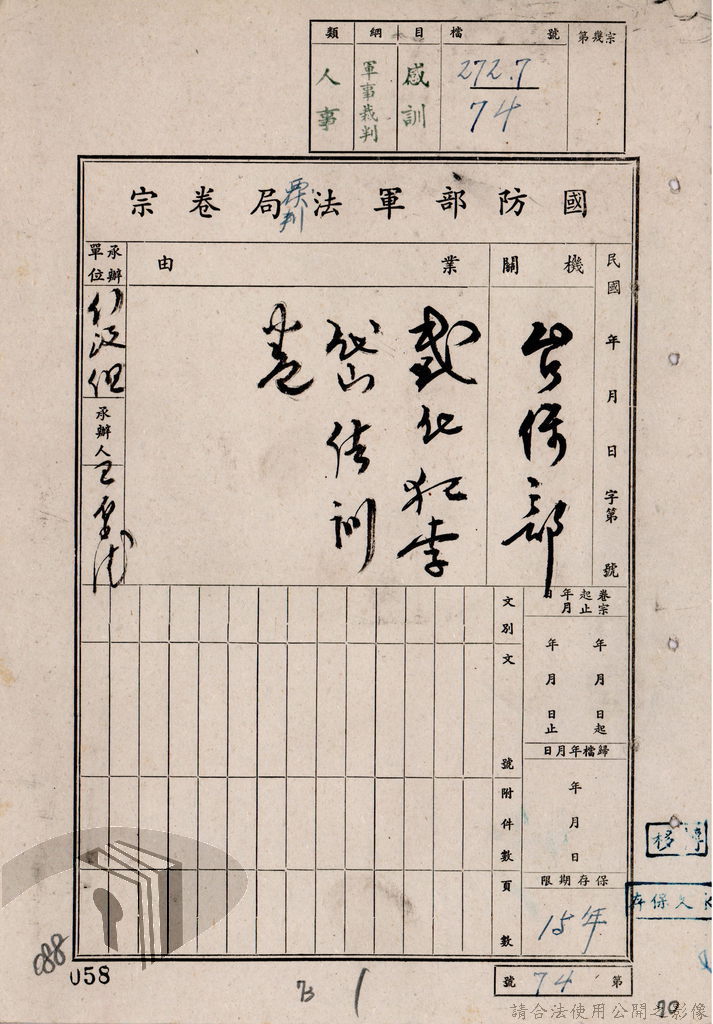 第幾宗
檔號
272.7
74
目
感訓
綱
軍事裁判
類
人事
國防部軍法局卷宗
覆判
民國 年 月 日 字第 號
機關
台保部
業由
感化犯李
岱山結訓
卷
承辦單位
承辦人
卷宗起止年月日
年 月 日起
年 月 日止
歸檔年月日
年 月 日
保存期限
15年
文別
文號
附件數
頁數
第 74 號
移
存保久
088
058
73
1
70
請合法使用公開之影像